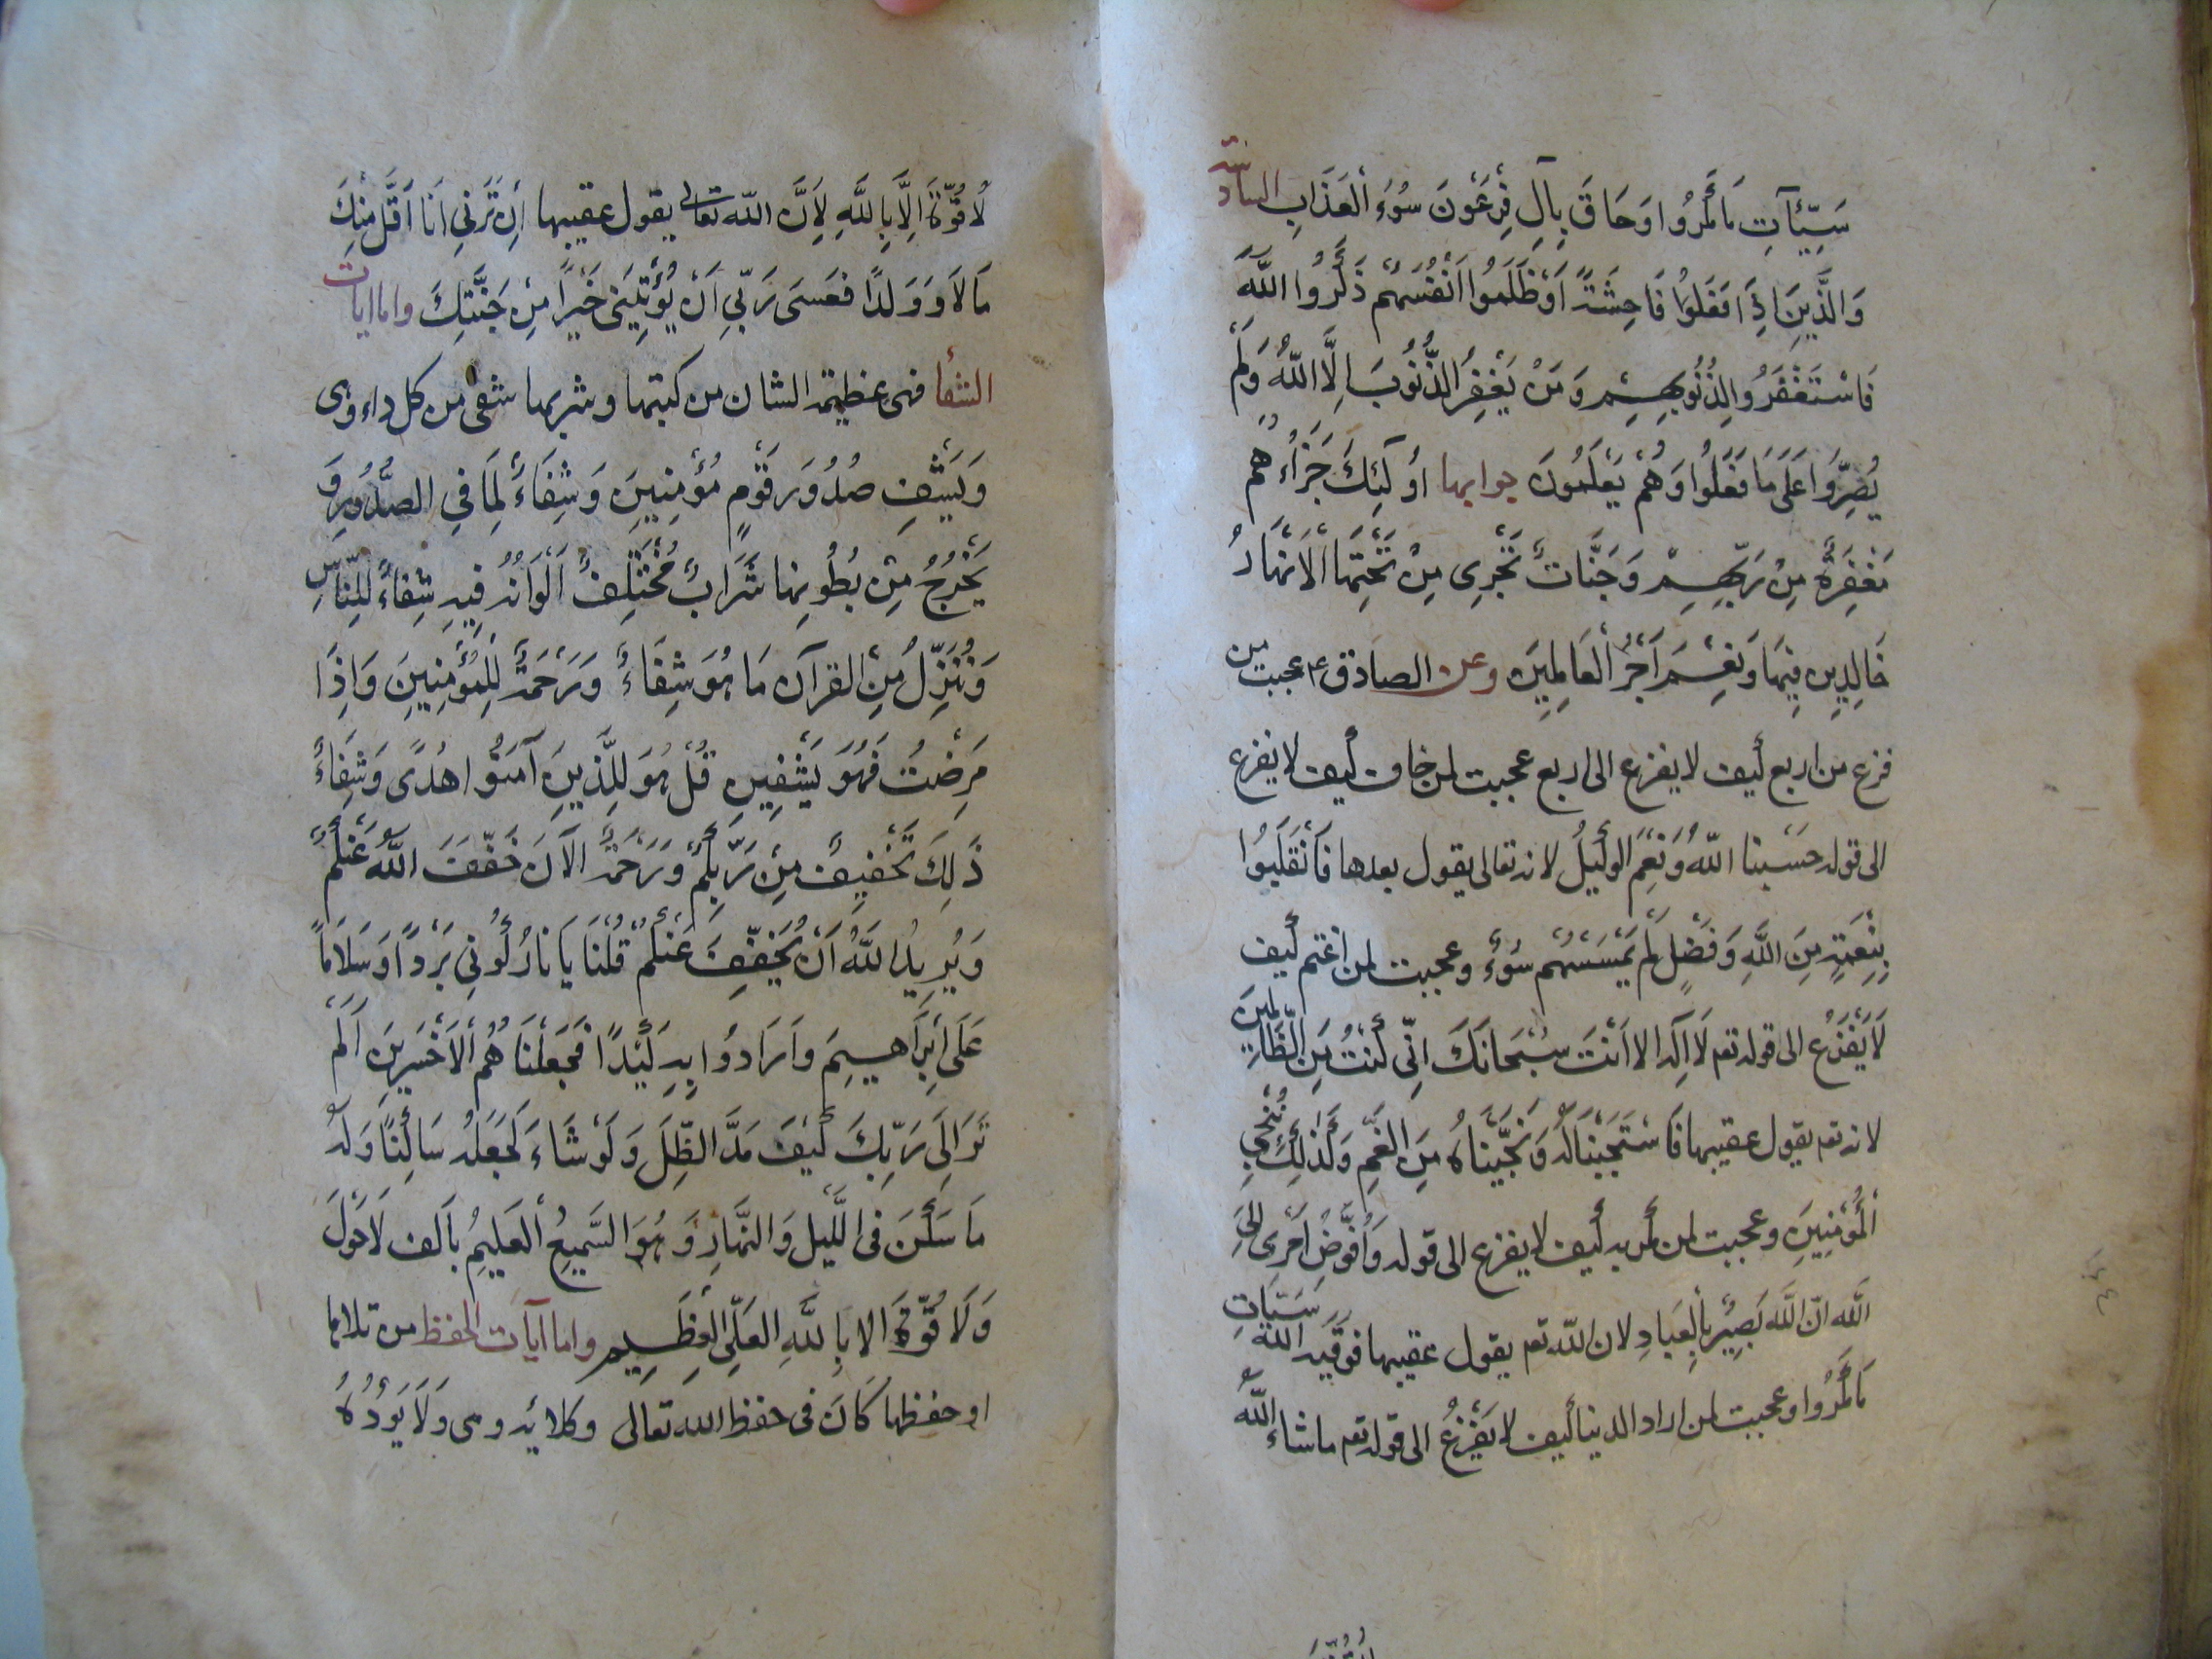 سَيِّئَآتِ مَا مَكَرُوا وَحَاقَ بِآلِ فِرْعَوْنَ سُوءُ الْعَذَابِ السادسة
وَالَّذِينَ اِذَا فَعَلُوا فَاحِشَةً اَوْ ظَلَمُوا اَنْفُسَهُمْ ذَكَرُوا اللَّهَ
فَاسْتَغْفَرُوا لِذُنُوبِهِمْ وَمَنْ يَغْفِرُ الذُّنُوبَ اِلَّا اللّٰهُ وَلَمْ
يُصِرُّوا عَلَى مَا فَعَلُوا وَهُمْ يَعْلَمُونَ جوابها أُولَئِكَ جَزَاءُهُمْ
مَغْفِرَةٌ مِنْ رَبِّهِمْ وَجَنَّاتٌ تَجْرِى مِنْ تَحْتِهَا الْاَنْهَارُ
خَالِدِينَ فِيهَا وَنِعْمَ اَجْرُ الْعَامِلِينَ وعن الصادق ع عجبت من
فزع من اربع كيف لا يفزع الى اربع عجبت لمن خاف كيف لا يفزع
الى قوله حَسْبنا اللّٰهُ وَنِعْمَ الوكيلُ لانه تعالى يقول بعدها فَانْقَلَبُوا
بِنِعْمَةٍ مِنَ اللَّهِ وَفَضْلٍ لَمْ يَمْسَسْهُمْ سُوءٌ وعجبت لمن اغتم كيف
لَا يَفْزَعُ الى قوله تعم لَا اِلَهَ الا اَنْتَ سُبْحَانَكَ اِنِّى كُنْتُ مِنَ الظَّالِمِينَ
لانه تعم يقول عقيبها فَاسْتَجَبْنَا لَهُ وَنَجَّيْنَاهُ مِنَ الغَمِّ وَكَذَلِكَ نُنْجِي
الْمُؤْمِنِينَ وعجبت لمن مكر به كيف لا يفزع الى قوله وَاُفَوِّضُ اَمْرِى اِلَى
اللَّهِ اِنّ اللَّهَ بَصِيرٌ بِالْعِبَادِ لان اللّه تعم يقول عقيبها فوقَيه اللهُ سَيِّئَاتِ
مَا مَكَرُوا وعجبت لمن اراد الدنيا كيف لا يَفْزَعُ الى قوله تعم ماشاء اللّهُ
لا قُوَّةَ
لَا قُوَّةَ اِلَّا بِاللَّهِ لِاَنَّ اللّه تعالى يقول عقيبها اِنْ تَرَنِي اَنَا اَقَلَّ مِنْكَ
مَالًا وَوَلَدًا فعَسَى رَبِّي اَنْ يُؤْتِيَنِى خَيْرًا مِنْ جَنَّتِكَ واما ايات
الشفأ فهى عظيمة الشان من كتبها و شربها شفى من كل داء وهى
وَيَشْفِ صُدُورَ قَوْمٍ مُؤْمِنِينَ وَشِفَاءٌ لِمَا فِي الصُّدُورِ وَ
يَخْرُجُ مِنْ بُطُونِهَا شَرَابٌ مُخْتَلِفٌ اَلْوَانُهُ فِيهِ شِفاءٌ لِلنَّاسِ
وَنُنَزِّلُ مِنَ القرآن مَا هُوَ شِفَاءٌ وَرَحْمَةٌ لِلْمُؤْمِنِينَ وَاِذَا
مَرِضْتُ فَهُوَ يَشْفِينِ قُلْ هُوَ لِلَّذِينَ آمَنُوا هُدًى وَشِفَاءٌ
ذَلِكَ تَخْفِيفٌ مِنْ رَبِّكُمْ وَرَحْمَةٌ الْآنَ خَفَّفَ اللَّهُ عَنْكُمْ
وَيُرِيدُ اللّٰهُ اَنْ يُخَفِّفَ عَنْكُمْ قُلْنَا يَا نَارُ كُونِي بَرْدًا وَسَلَامًا
عَلَى اِبْرَاهِيمَ وَاَرَادُوا بِهِ كَيْدًا فَجَعَلْنَاهُمُ الْاَخْسَرِينَ اَلَمْ
تَرَ اِلَى رَبِّكَ كَيْفَ مَدَّ الظِّلَ وَلَوْ شَاءَ لَجَعَلَهُ سَاكِنًا وَلَهُ
مَا سَكَنَ فى اللَّيلِ وَالنَّهَارِ وَهُوَ السَّمِيعُ الْعَلِيمُ بالف لَاحَوْلَ
وَلَا قُوَّةَ الا بِاللَّهِ العَلِيِّ العَظِيمِ واما آيات الحفظ من تلاها
او حفظها كَانَ فى حفظ الله تعالى وكلائه وهى وَلَا يَؤُدُهُ